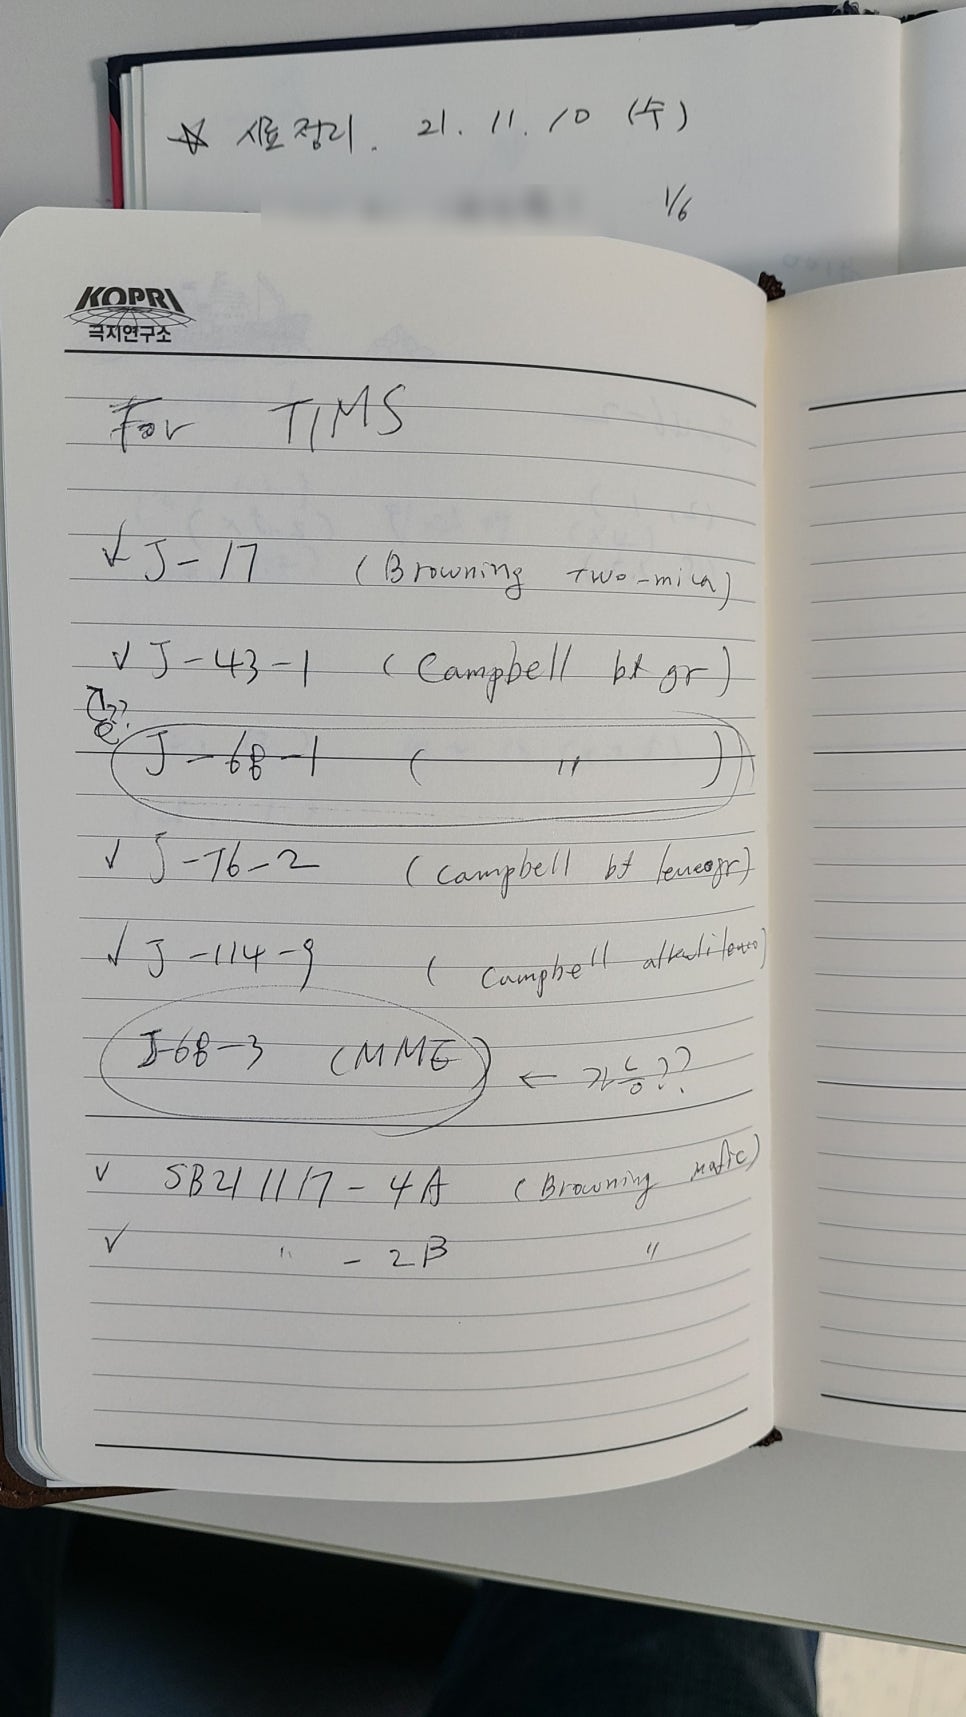 ☆ 시료정리. 21. 11. 10 (수)
1/6
KOPRI
극지연구소
For TIMS
✓ J-17 (Browning two-mica)
✓ J-43-1 (Campbell bt gr)
J-68-1 ( 〃 )
✓ J-76-2 (Campbell bt leucogr)
✓ J-114-9 ( Campbell alkali leuco)
J-68-3 (MME) ← 가능??
✓ SB211117-4A (Browning mafic)
✓ 〃 -2B 〃